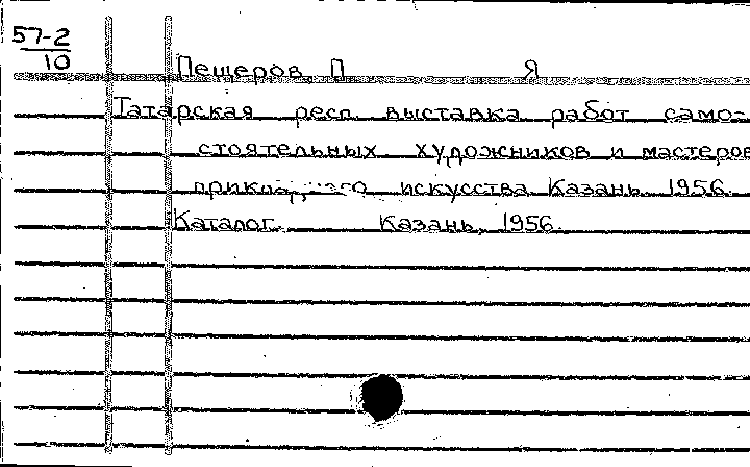 57-2
10
Пещеров, П Я
Татарская респ. выставка работ само-
стоятельных художников и мастеров
искусства. Казань. 1956.
Каталог. Казань, 1956.